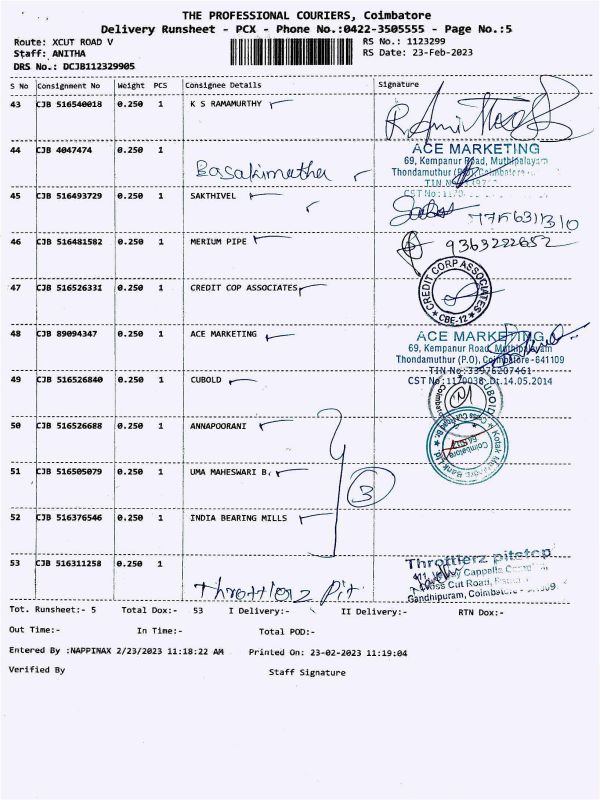 THE PROFESSIONAL COURIERS, Coimbatore
Delivery Runsheet - PCX - Phone No.:0422-3505555 - Page No.:5
Route: XCUT ROAD V RS No.: 1123299
Staff: ANITHA RS Date: 23-Feb-2023
DRS No.: DCJB112329905
S No Consignment No Weight PCS Consignee Details Signature
43 CJB 516540018 0.250 1 K S RAMAMURTHY
44 CJB 4047474 0.250 1
ACE MARKETING
69, Kempanur Road, Muthipalayam
Thondamuthur (P.O) Coimbatore
TIN N
CST No:
45 CJB 516493729 0.250 1 SAKTHIVEL
46 CJB 516481582 0.250 1 MERIUM PIPE 9363222652
47 CJB 516526331 0.250 1 CREDIT COP ASSOCIATES
CREDIT CORP ASSOCIATES
CBE-12
48 CJB 89094347 0.250 1 ACE MARKETING
ACE MARKETING
69, Kempanur Road, Muthipalayam
Thondamuthur (P.O), Coimbatore -641109
TIN No:33976207461
CST No:1170038 Dt.14.05.2014
49 CJB 516526840 0.250 1 CUBOLD
CUBOLD
Coimbatore
50 CJB 516526688 0.250 1 ANNAPOORANI
Kotak Mahindra Bank Ltd
Coimbatore
51 CJB 516505079 0.250 1 UMA MAHESWARI B.
3
52 CJB 516376546 0.250 1 INDIA BEARING MILLS
53 CJB 516311258 0.250 1 Throttlerz Pit
Throttlerz pitstop
Cappella
Cross Cut Road,
Gandhipuram,
Tot. Runsheet:- 5 Total Dox:- 53 I Delivery:- II Delivery:- RTN Dox:-
Out Time:- In Time:- Total POD:-
Entered By :NAPPINAX 2/23/2023 11:18:22 AM Printed On: 23-02-2023 11:19:04
Verified By Staff Signature